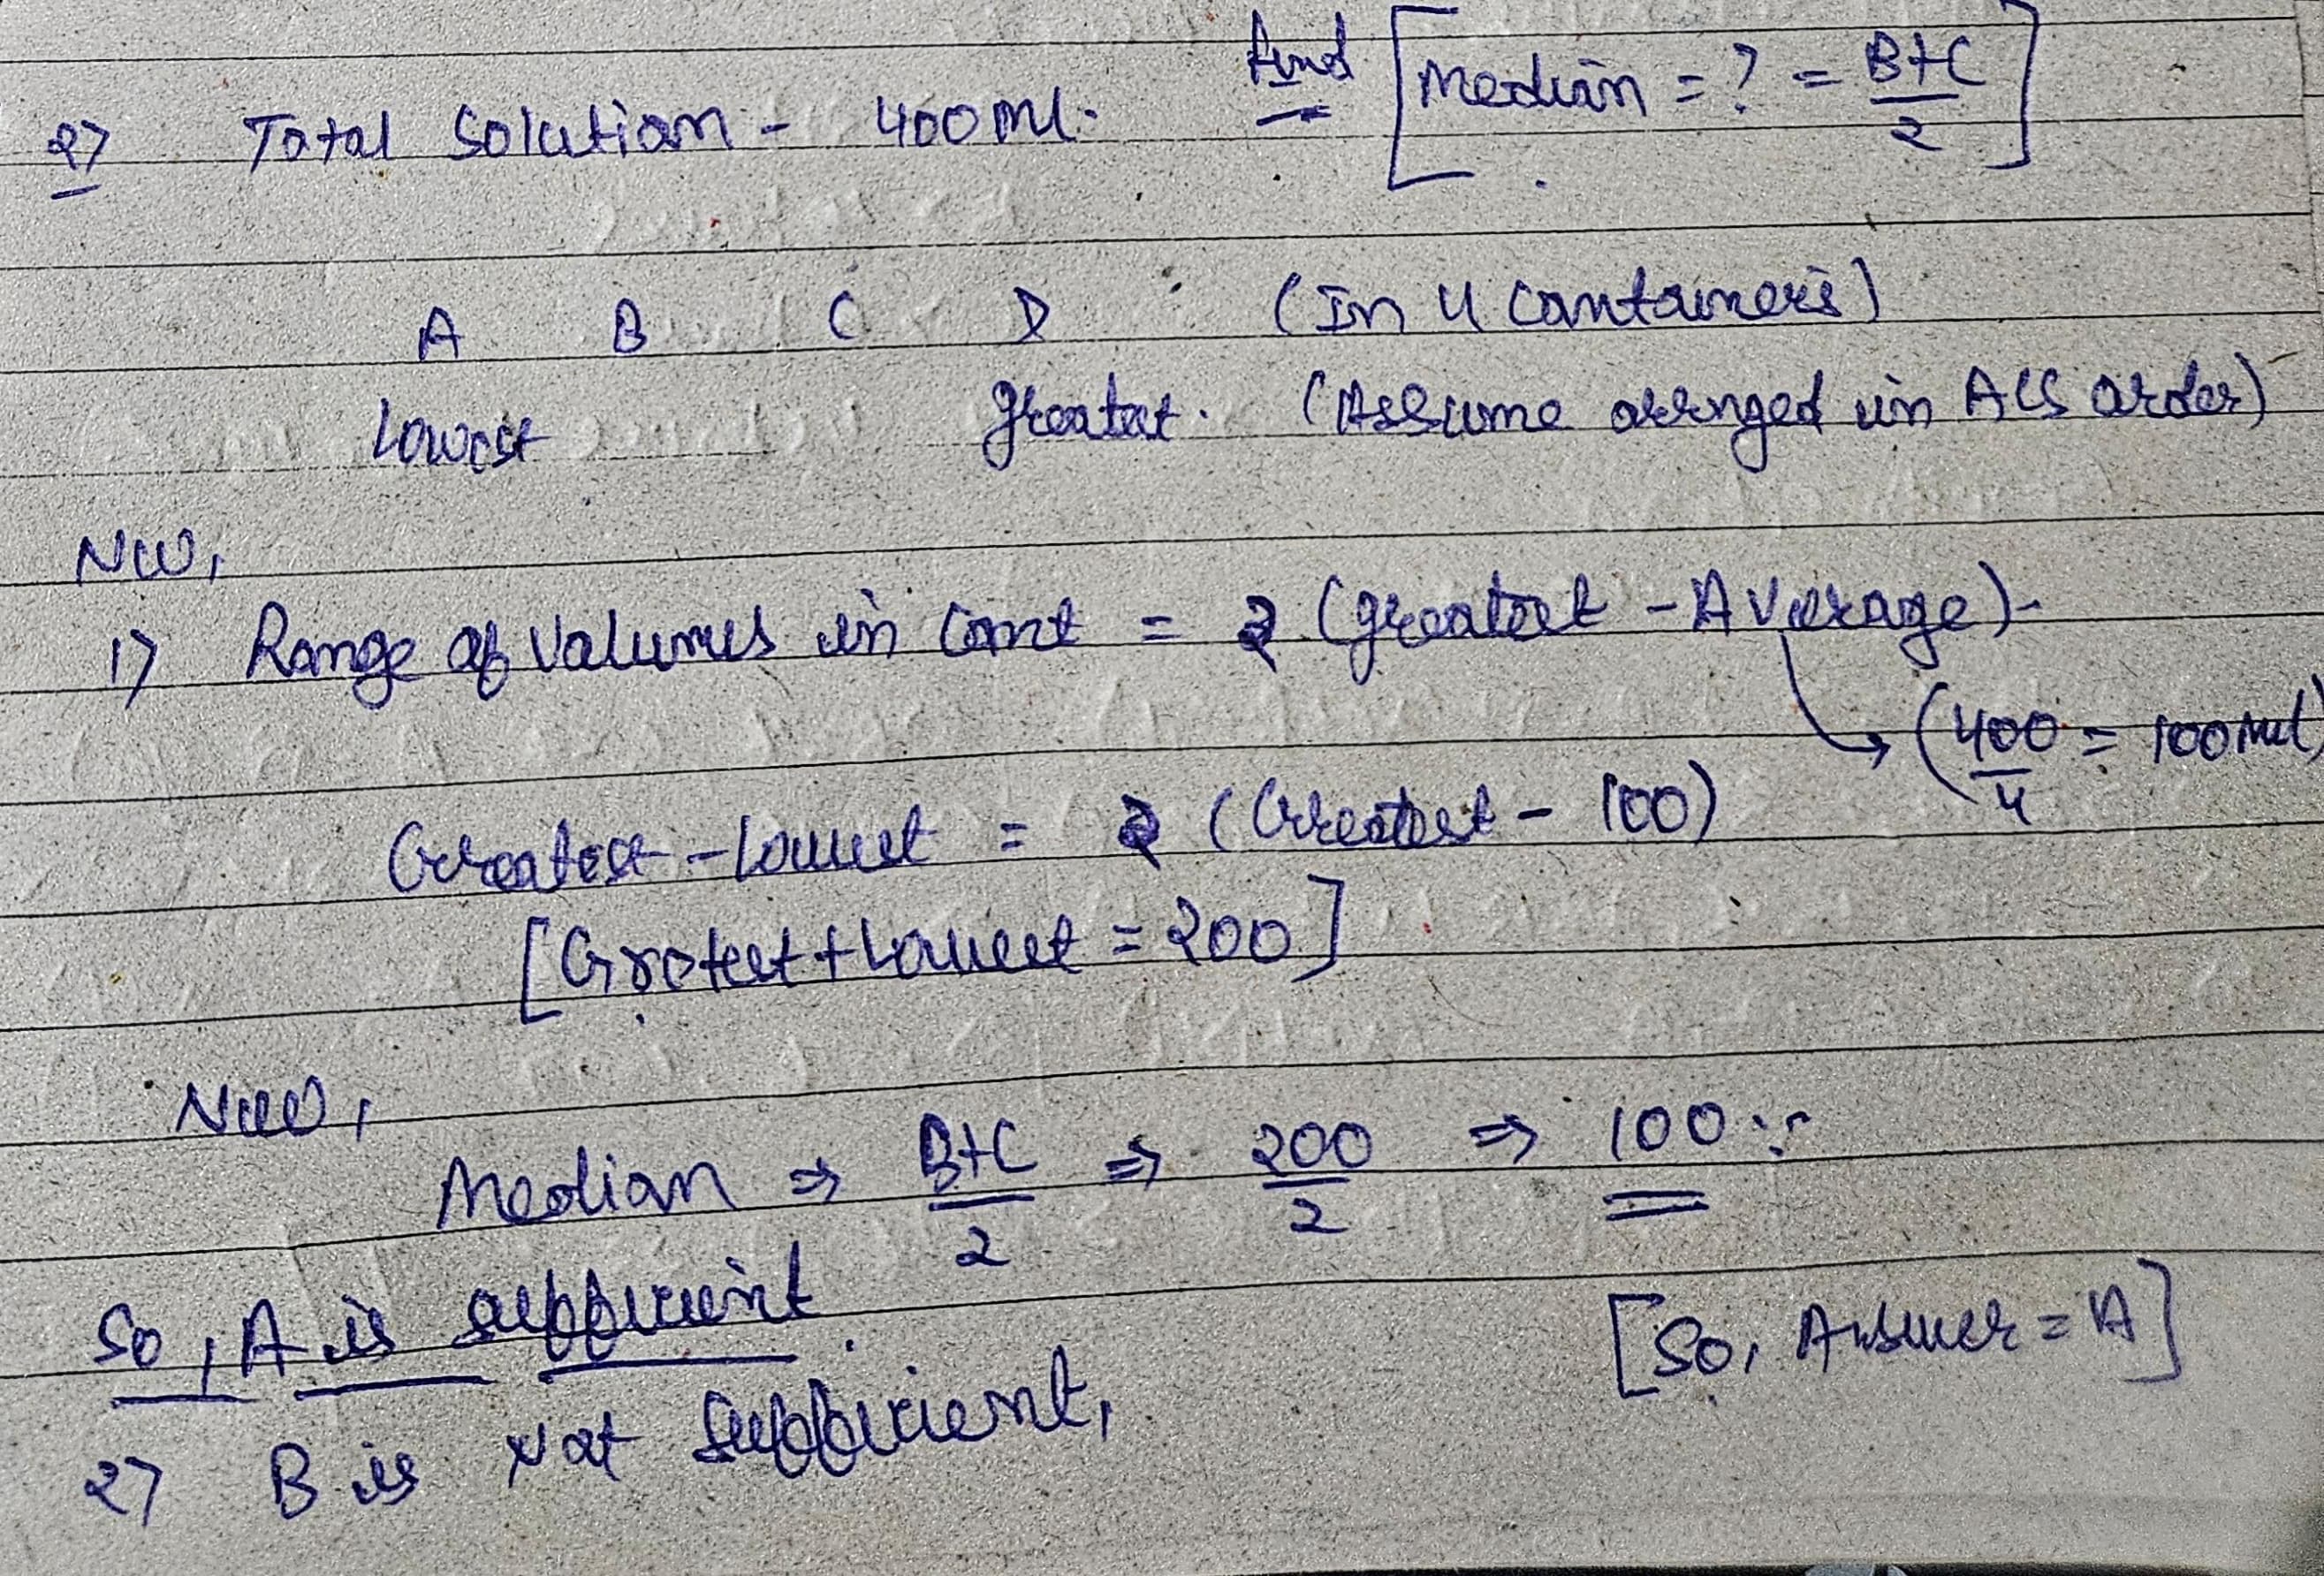 find [Median = ? = B+C/2]
2) Total Solution - 400 ml.
A B C D (In 4 containers)
Lowest greatest. (Assume arranged in ACS order)
Now,
1) Range of Volumes in cont = 2 (greatest - Average)
→ (400/4 = 100 ml)
Greatest - Lowest = 2 (Greatest - 100)
[Grotest + Lowest = 200]
Now,
Median ⇒ B+C/2 ⇒ 200/2 ⇒ 100
So, A is sufficient.
[So, Answer = A]
2) B is Not Sufficient,